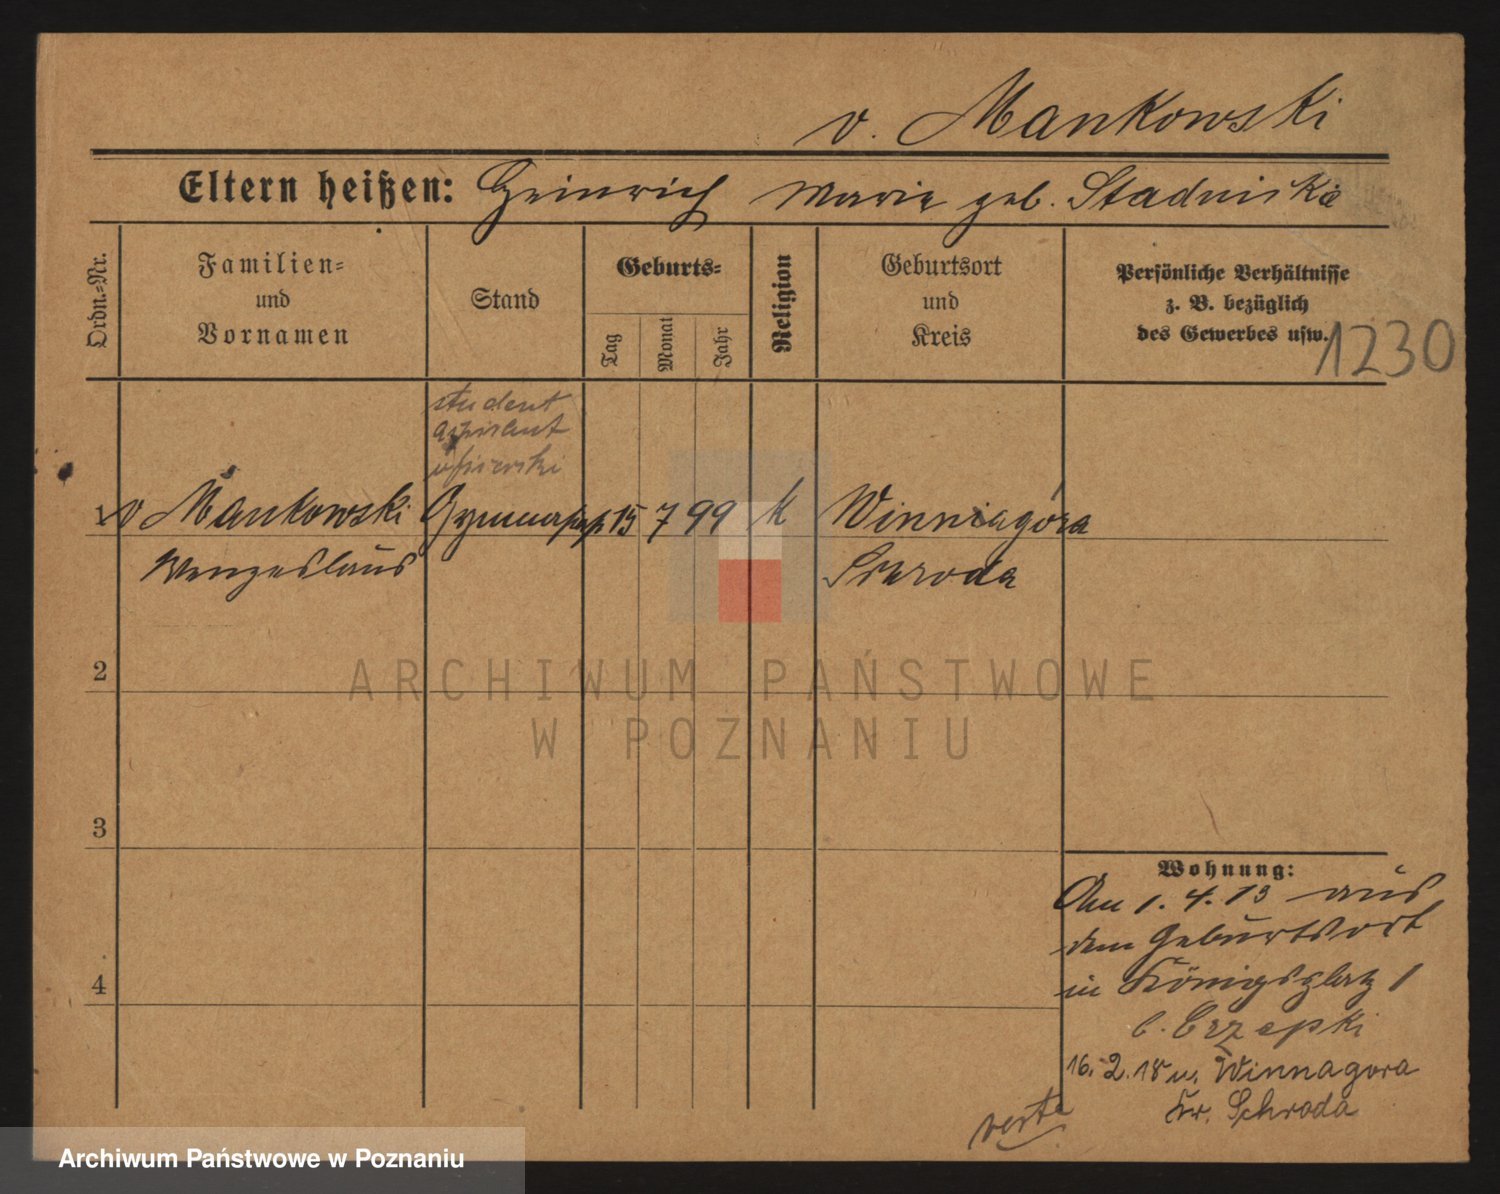 v. Mankowski
Eltern heißen: Heinrich Marie geb. Stadniska
Ordn.-Nr.
Familien-
und
Vornamen
Stand
Geburts-
Tag
Monat
Jahr
Religion
Geburtsort
und
Kreis
Persönliche Verhältnisse
z. B. bezüglich
des Gewerbes usw.
1230
student
aspirant
oficerski
1 v Mankowski 15 7 99 k Winniagóra
Wenzeslaus Schroda
2
3
4
Wohnung:
Am 1. 4. 13 aus
dem Geburtsort
in Königsplatz 1
b. Erzepki
16. 2. 18 n. Winnagora
Kr. Schroda
verte
ARCHIWUM PAŃSTWOWE
W POZNANIU
Archiwum Państwowe w Poznaniu